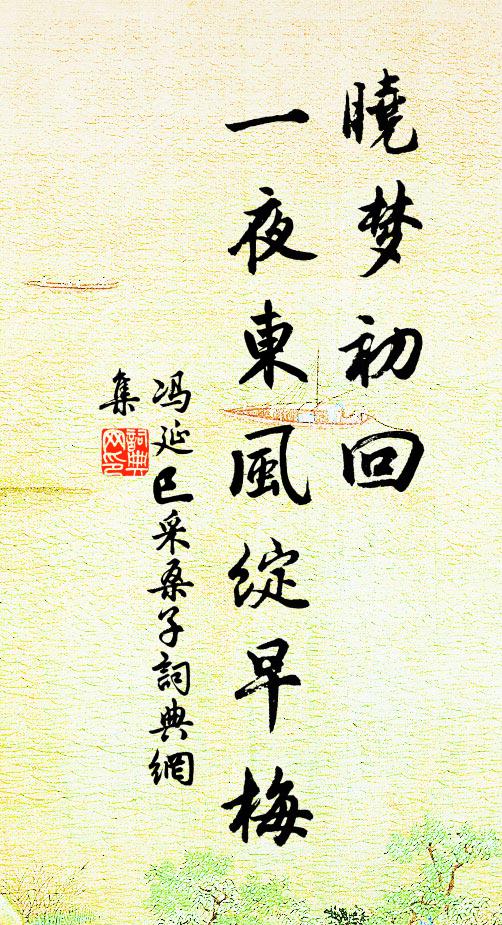 曉梦初回
一夜東風綻早梅
冯延巳采桑子詞典網
集
詞典網印